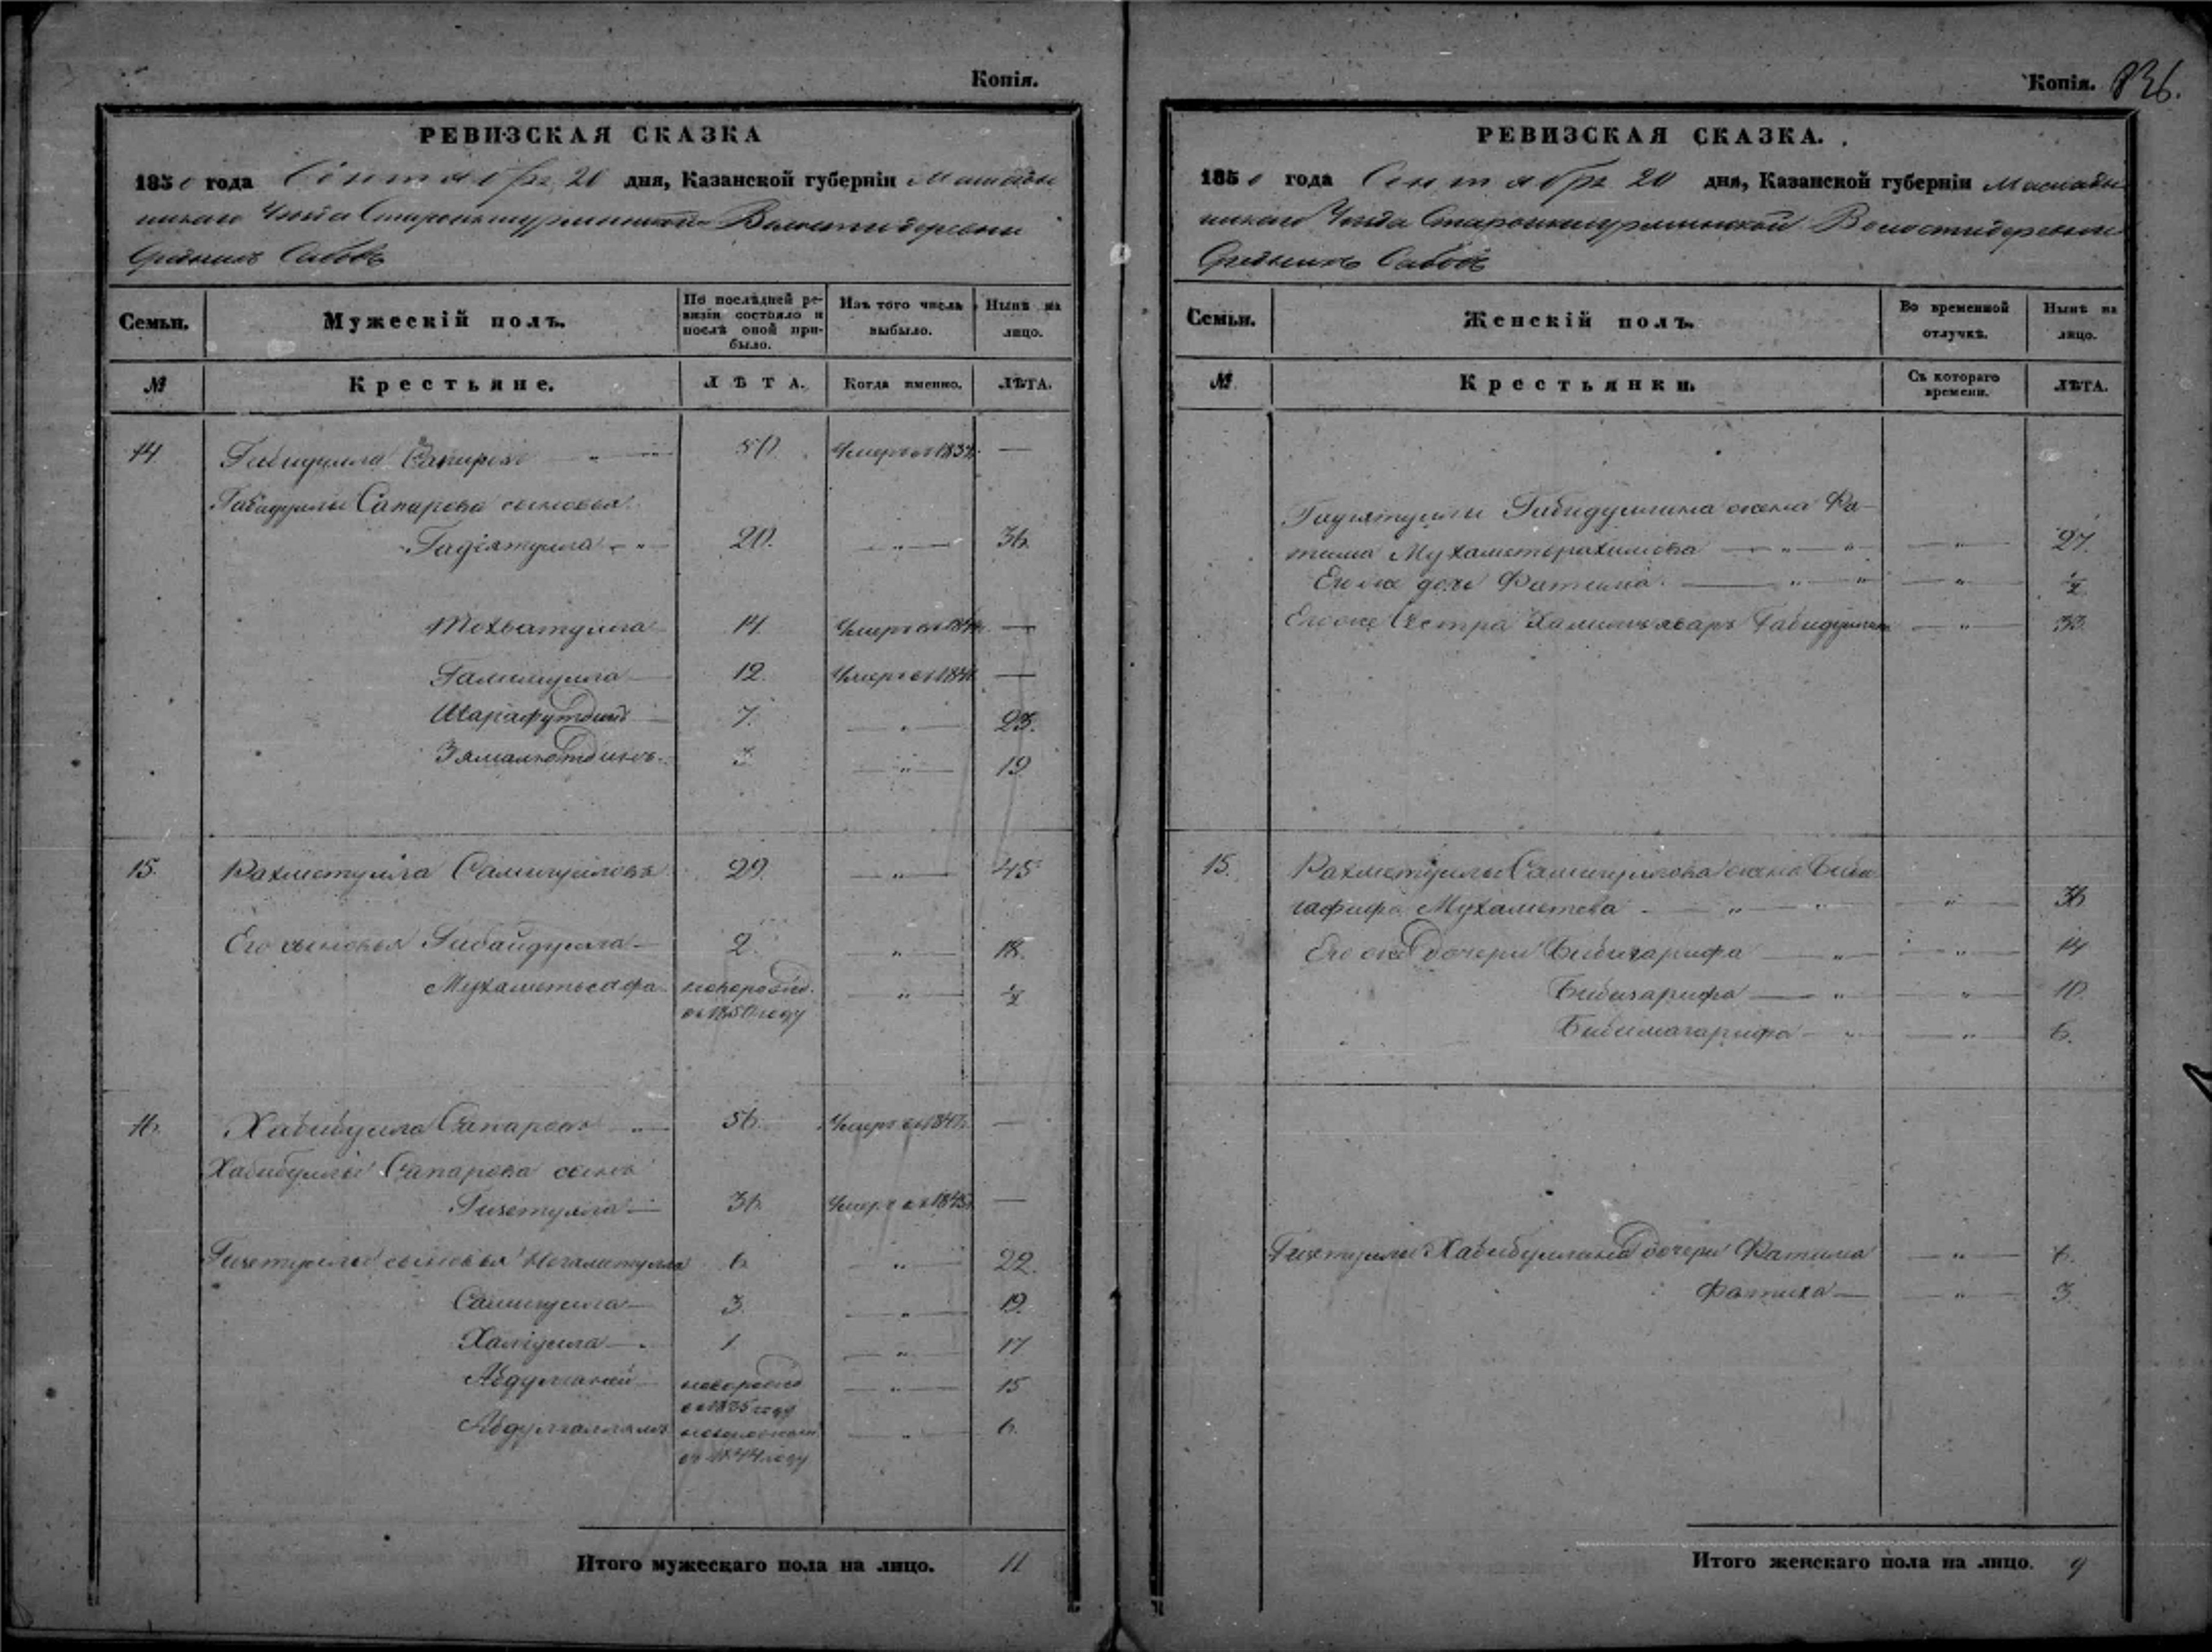 Копія.
РЕВИЗСКАЯ СКАЗКА
1850 года Сентября 20 дня, Казанской губерніи Мамады
шскаго Уѣзда Староикшурминской Волости деревни
Среднихъ Сабовъ
Семьи.
Мужескій полъ.
По послѣдней ре-
визіи состояло и
послѣ оной при-
было.
Изъ того числа
выбыло.
Нынѣ на
лицо.
№
Крестьяне.
ЛѢТА.
Когда именно.
ЛѢТА.
14. Габидулла Сапаровъ 50. Умеръ въ 1837. —
Габидуллы Сапарова сыновья.
Гадіятулла 20. — „ — 36.
14. Умеръ въ —
Галимулла 12. Умеръ въ —
Шарафутдинъ 7. — „ — 23.
Зямалютдинъ 3. — „ — 19.
15. Рахметулла Самигулловъ 29. — „ — 45.
Его сыновья Габайдулла 2. — „ — 18.
Мухаметьсафа новорожд. — „ — ½
въ 1850 году
16. Хабибулла Сапаровъ 56. Умеръ въ —
Хабибуллы Сапарова сынъ
Гизетулла 36. Умеръ въ 1845. —
Гизетуллы сыновья Негаметулла 6 — „ — 22.
Самигулла 3. — „ — 19.
Халіулла 1 — „ — 17
новорожд. — „ — 15
въ 1835 году
6.
въ 1844 году
Итого мужескаго пола на лицо. 11
Копія. 836.
РЕВИЗСКАЯ СКАЗКА.
1850 года Сентября 20 дня, Казанской губерніи Мамады
шскаго Уѣзда Староикшурминской Волости деревни
Среднихъ Сабовъ
Семьи.
Женскій полъ.
Во временной
отлучкѣ.
Нынѣ на
лицо.
№
Крестьянки.
Съ котораго
времени.
ЛѢТА.
Гадіятуллы Габидуллина жена Фа-
тима Мухаметьрахимова — „ — 27.
Его же дочь Фатима — „ — ½
Его же Сестра Габидуллина — „ — 33.
15. Рахметуллы Самигуллова жена Биби
гафифа Мухаметева — „ — 36
Его же дочери Бибигарифа — „ — 14
Бибизарифа — „ — 10.
Бибимагарифа — „ — 6.
Гизетуллы Хабибуллина дочери Фатима — „ — 6.
Фатиха — „ — 3.
Итого женскаго пола на лицо. 9